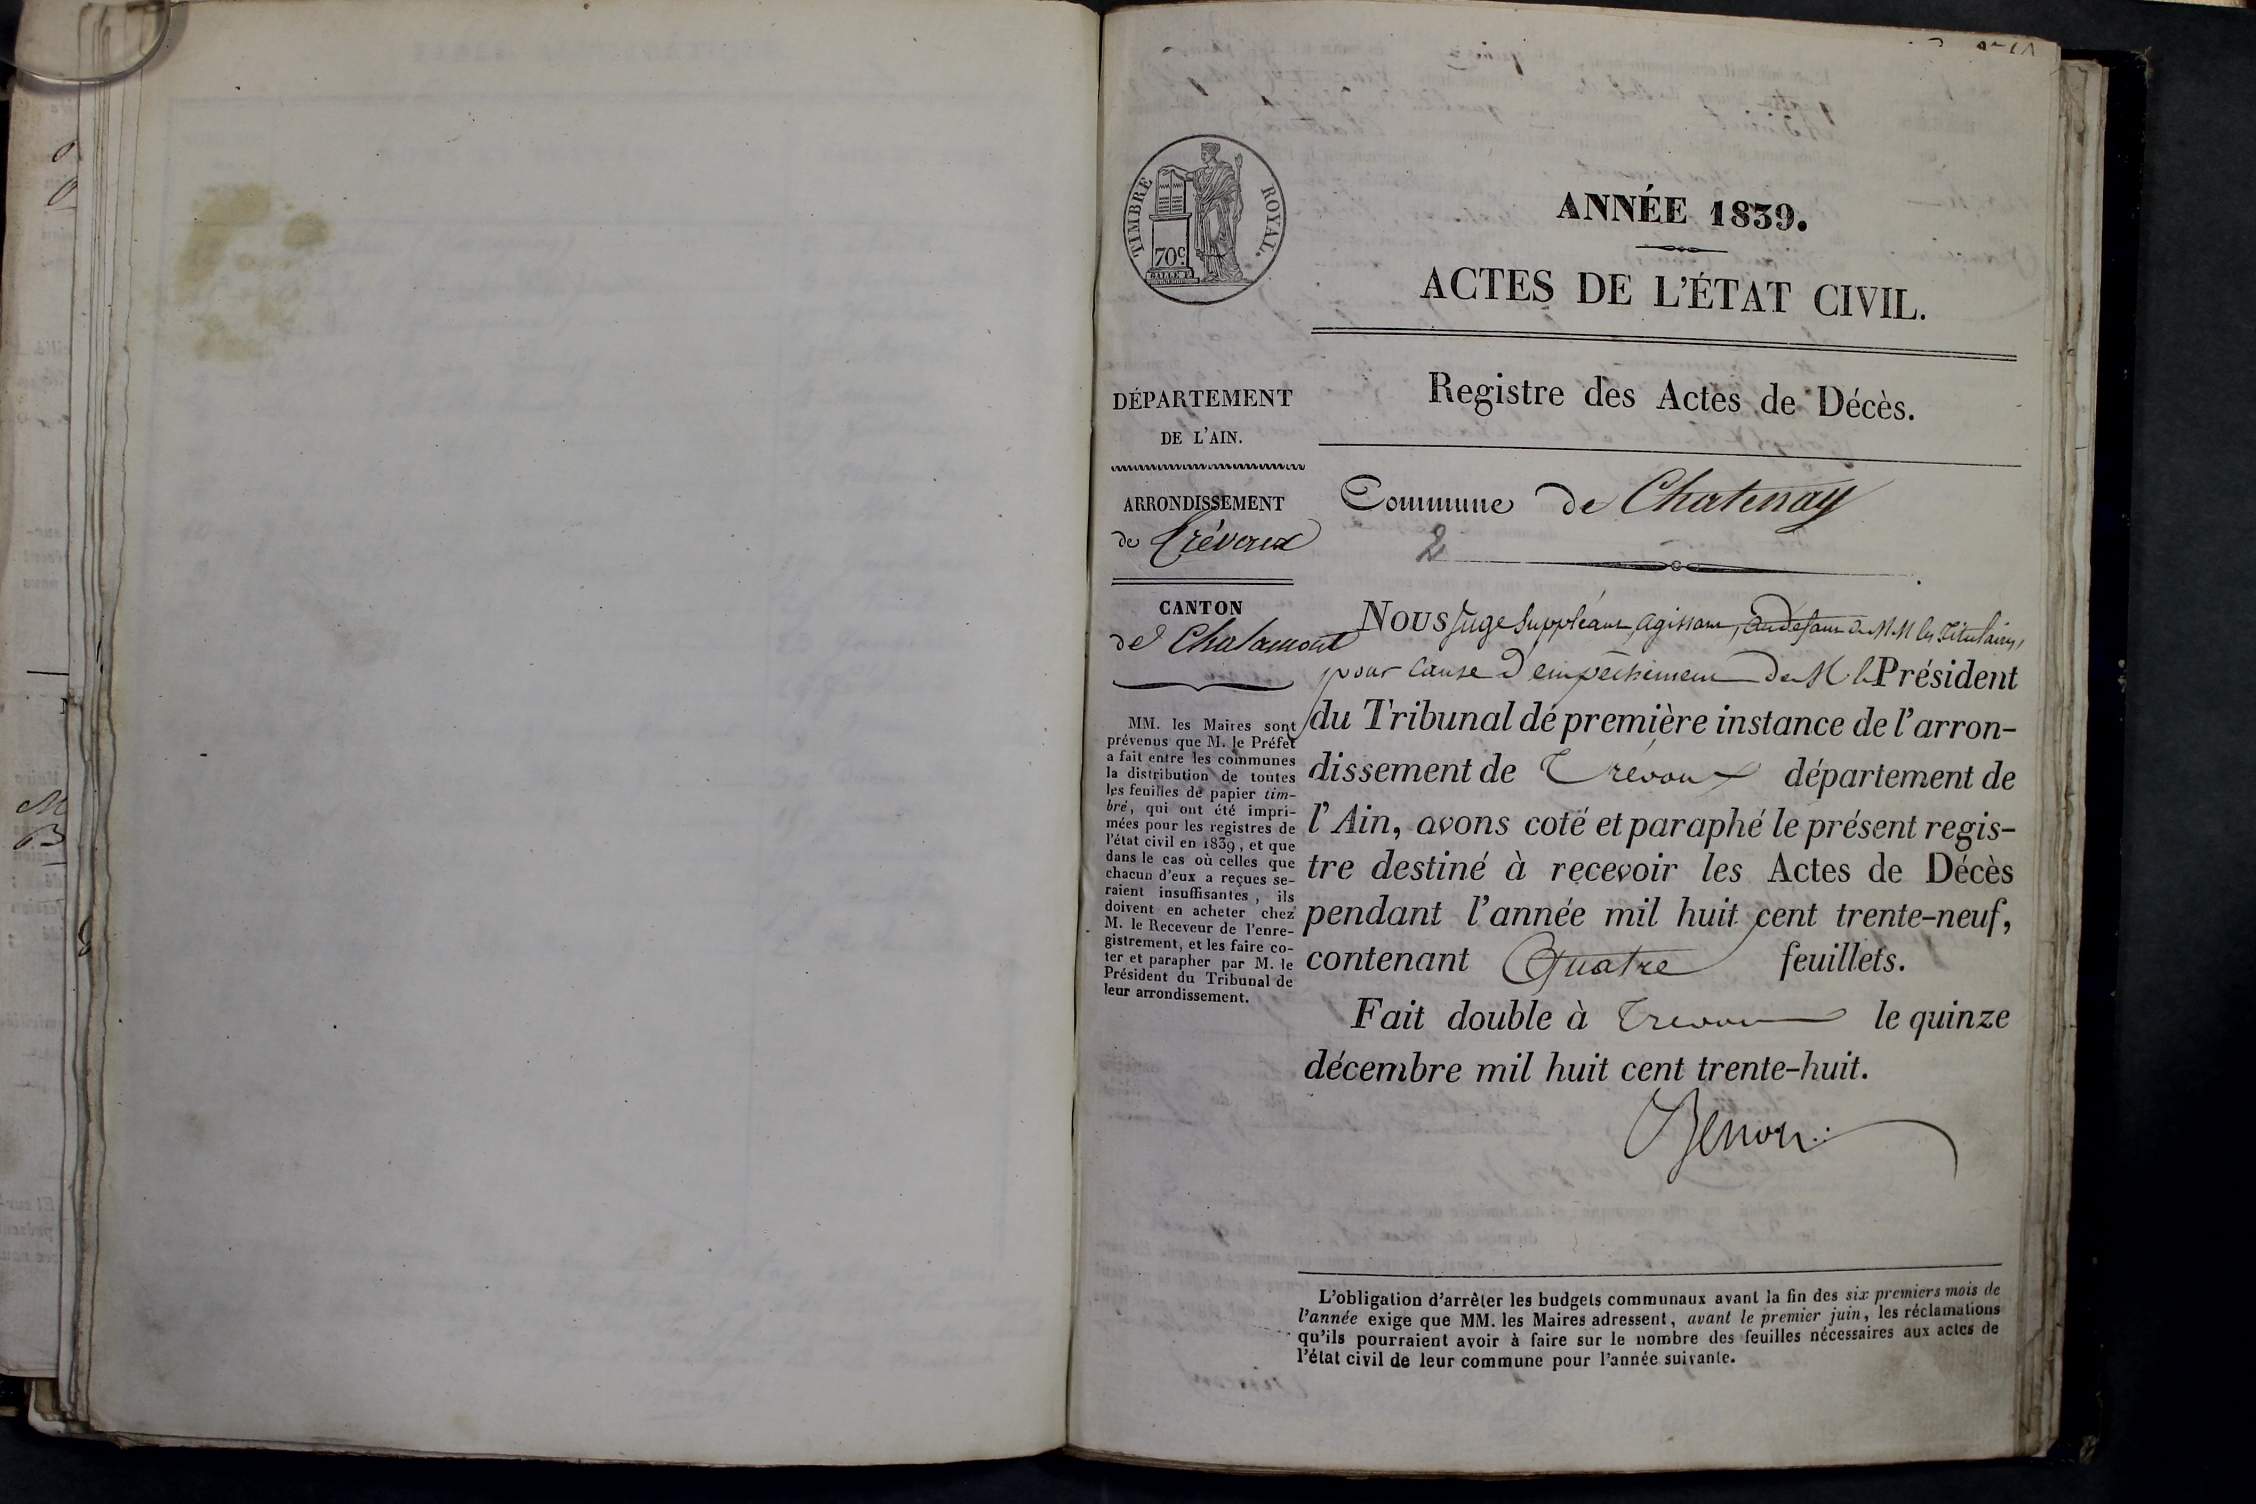 TIMBRE ROYAL.
70c.
ANNÉE 1839.
ACTES DE L'ÉTAT CIVIL.
DÉPARTEMENT
DE L'AIN.
ARRONDISSEMENT
de Trévoux
CANTON
de Chalamont
MM. les Maires sont
prévenus que M. le Préfet
a fait entre les communes
la distribution de toutes
les feuilles de papier tim-
bré, qui ont été impri-
mées pour les registres de
l'état civil en 1839, et que
dans le cas où celles que
chacun d'eux a reçues se-
raient insuffisantes, ils
doivent en acheter chez
M. le Receveur de l'enre-
gistrement, et les faire co-
ter et parapher par M. le
Président du Tribunal de
leur arrondissement.
Registre des Actes de Décès.
Commune de Chatenay
2
NOUS Juge Suppléant, agissant, au défaut de MM les Titulaires,
pour cause d'empêchement de M le Président
du Tribunal de première instance de l'arron-
dissement de Trévoux département de
l'Ain, avons coté et paraphé le présent regis-
tre destiné à recevoir les Actes de Décès
pendant l'année mil huit cent trente-neuf,
contenant Quatre feuillets.
Fait double à Trevoux le quinze
décembre mil huit cent trente-huit.
L'obligation d'arrêter les budgets communaux avant la fin des six premiers mois de
l'année exige que MM. les Maires adressent, avant le premier juin, les réclamations
qu'ils pourraient avoir à faire sur le nombre des feuilles nécessaires aux actes de
l'état civil de leur commune pour l'année suivante.